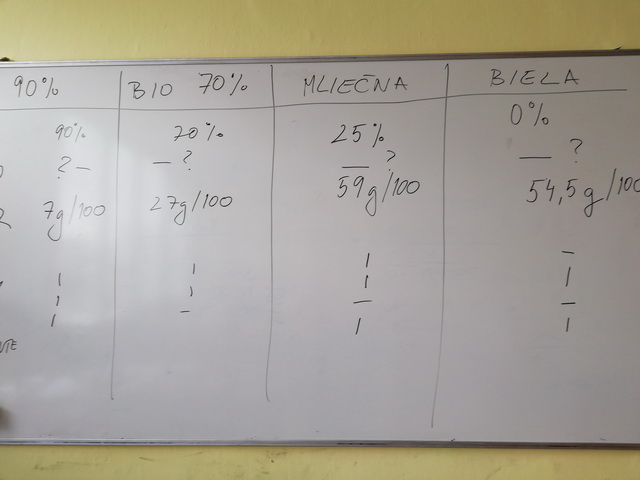 90% BIO 70% MLIEČNA BIELA
90% 70% 25% 0%
? — — ? — ? — ?
7g/100 27g/100 59g/100 54,5g/100
| | | —
| | | |
| — — —
| |